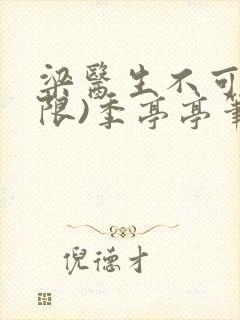 梁醫生不可
限)季亭亭筆
倪德才